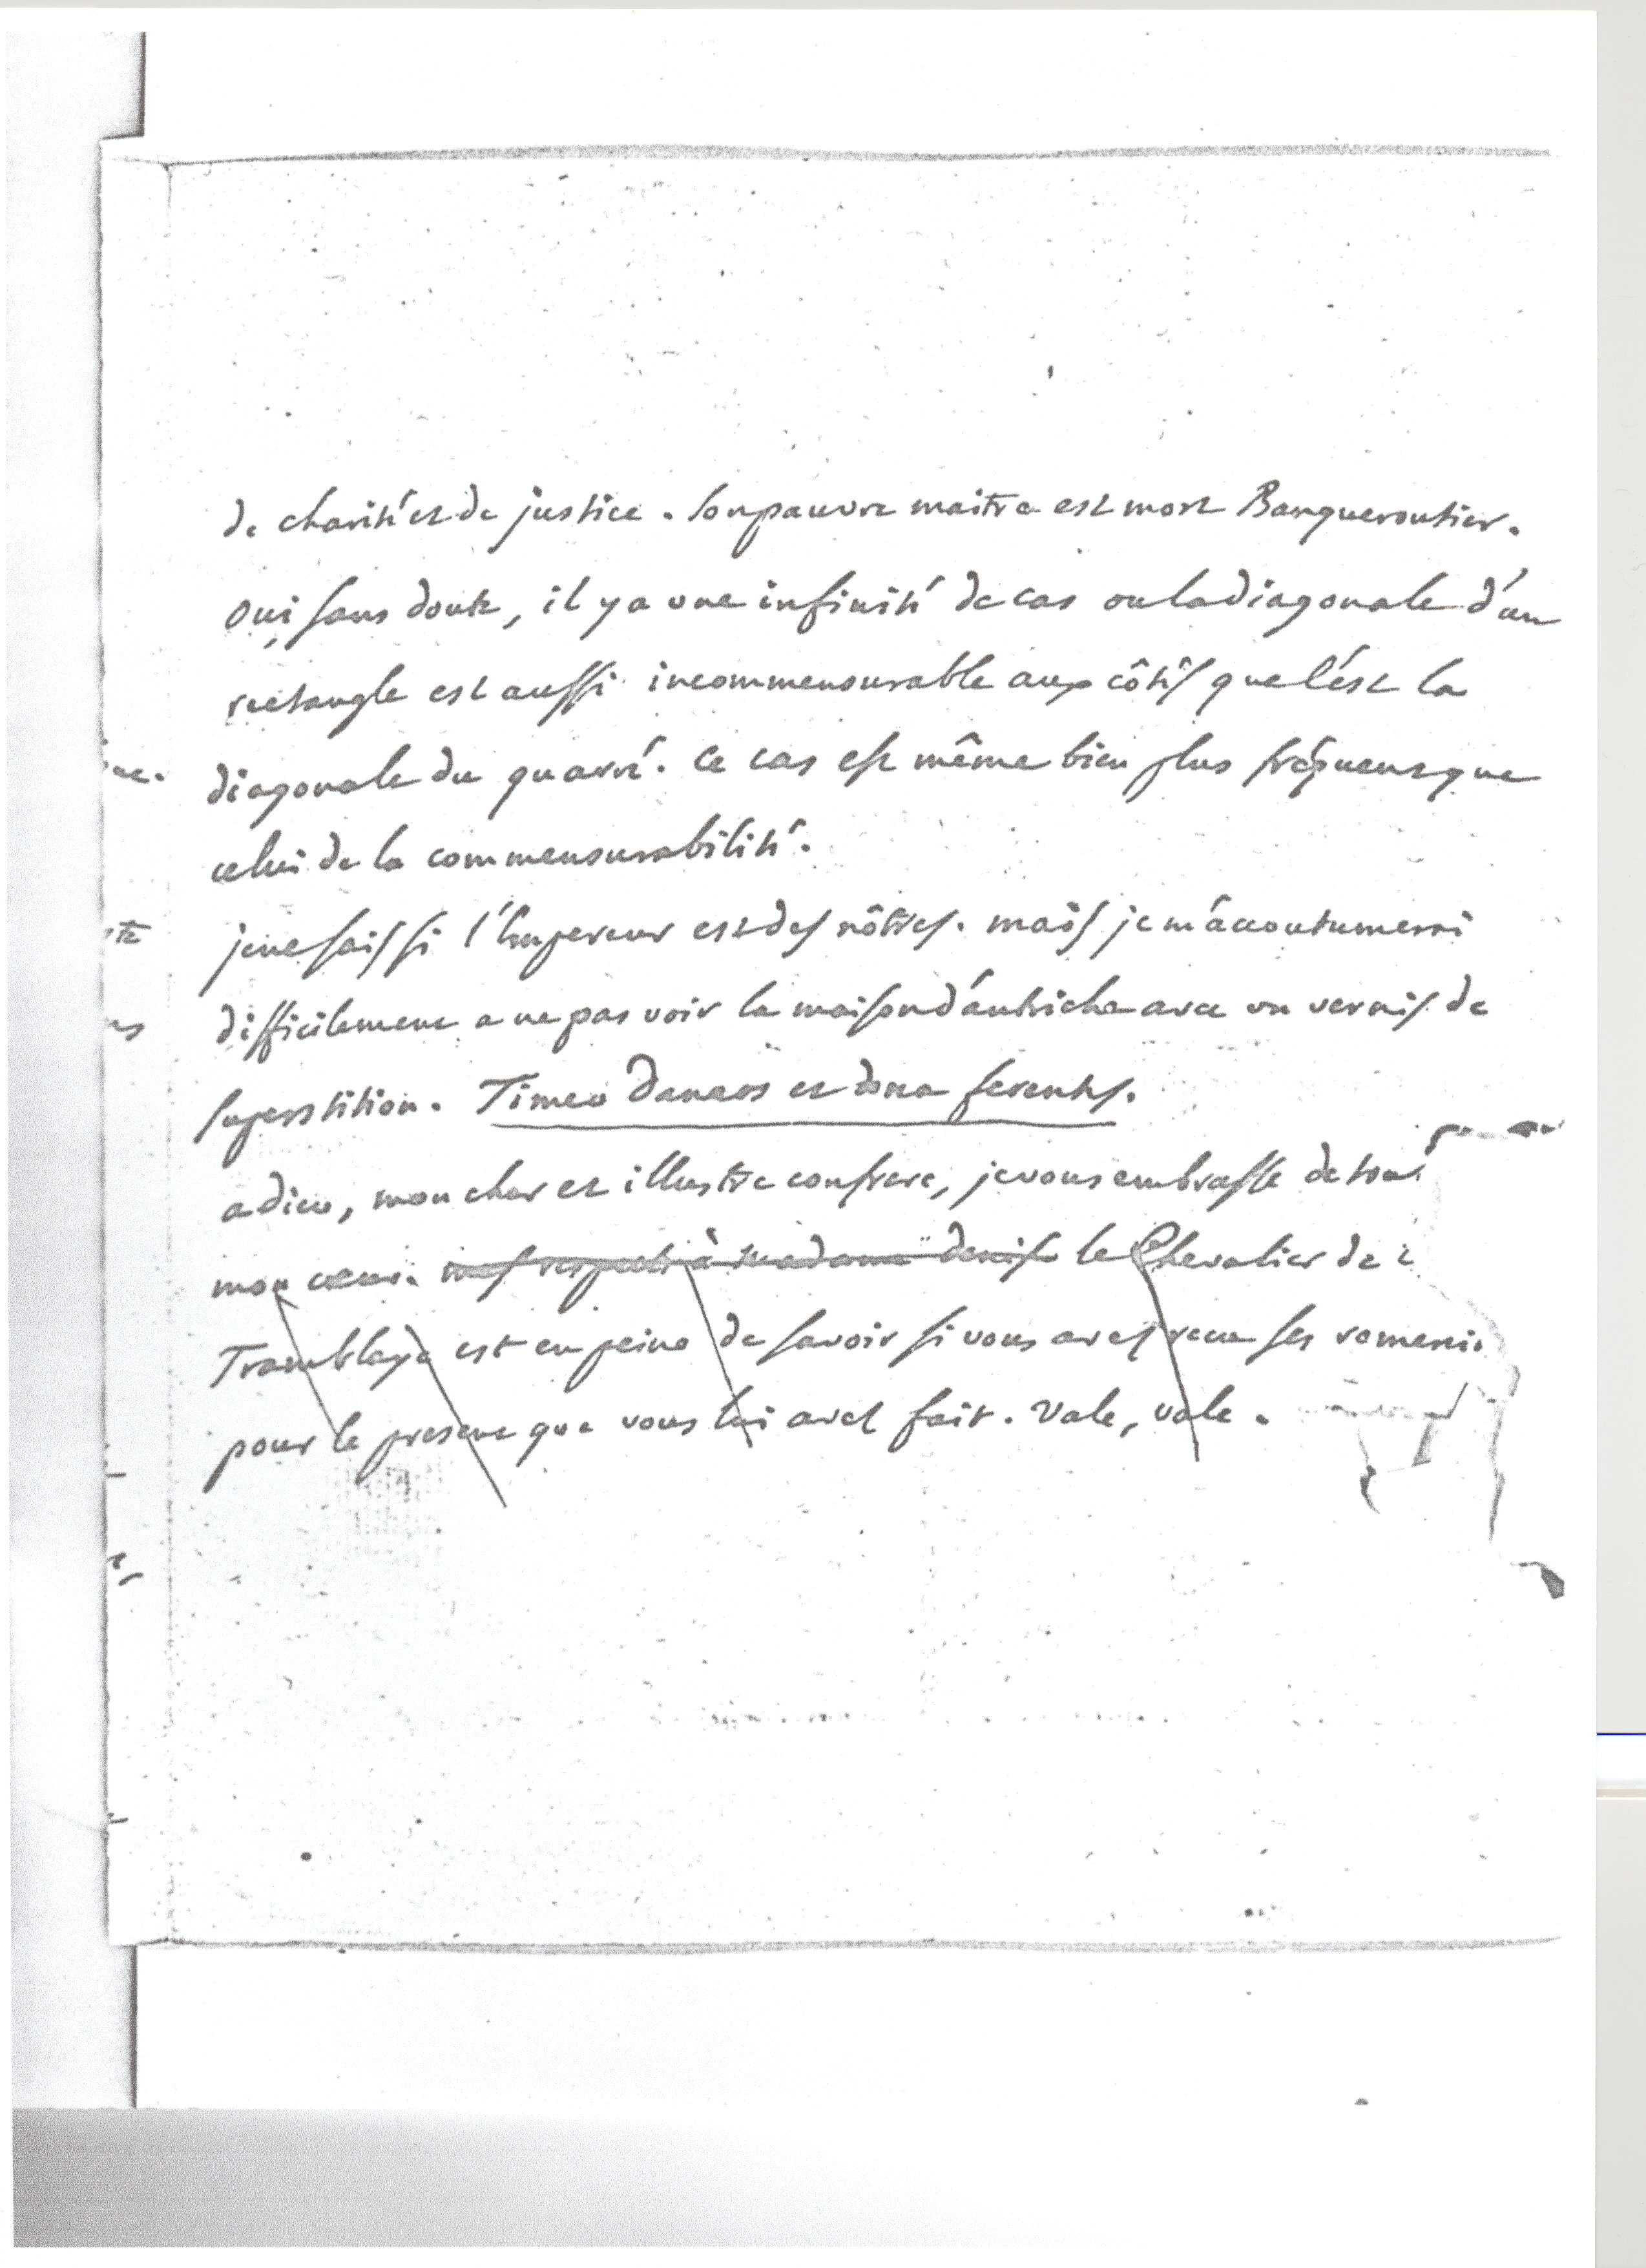 de charité et de justice. Son pauvre maitre est mort Banqueroutier.
oui sans doute, il y a une infinité de cas ou la diagonale d'un
rectangle est aussi incommensurable aux côtés que l'est la
diagonale du quarré. Ce cas est même bien plus fréquent que
celui de la commensurabilité.
je ne sais si l'Empereur est des nôtres. mais je m'accoutumerai
difficilement a ne pas voir la maison d'autriche avec un vernis de
superstition. Timeo Danaos et dona ferentes.
adieu, mon cher et illustre confrere, je vous embrasse de tout
mon coeur. mes respects à madame denis le Chevalier de
Tramblaye est en peine de savoir si vous avez recu ses remerci
pour le present que vous lui avez fait. Vale, vale.